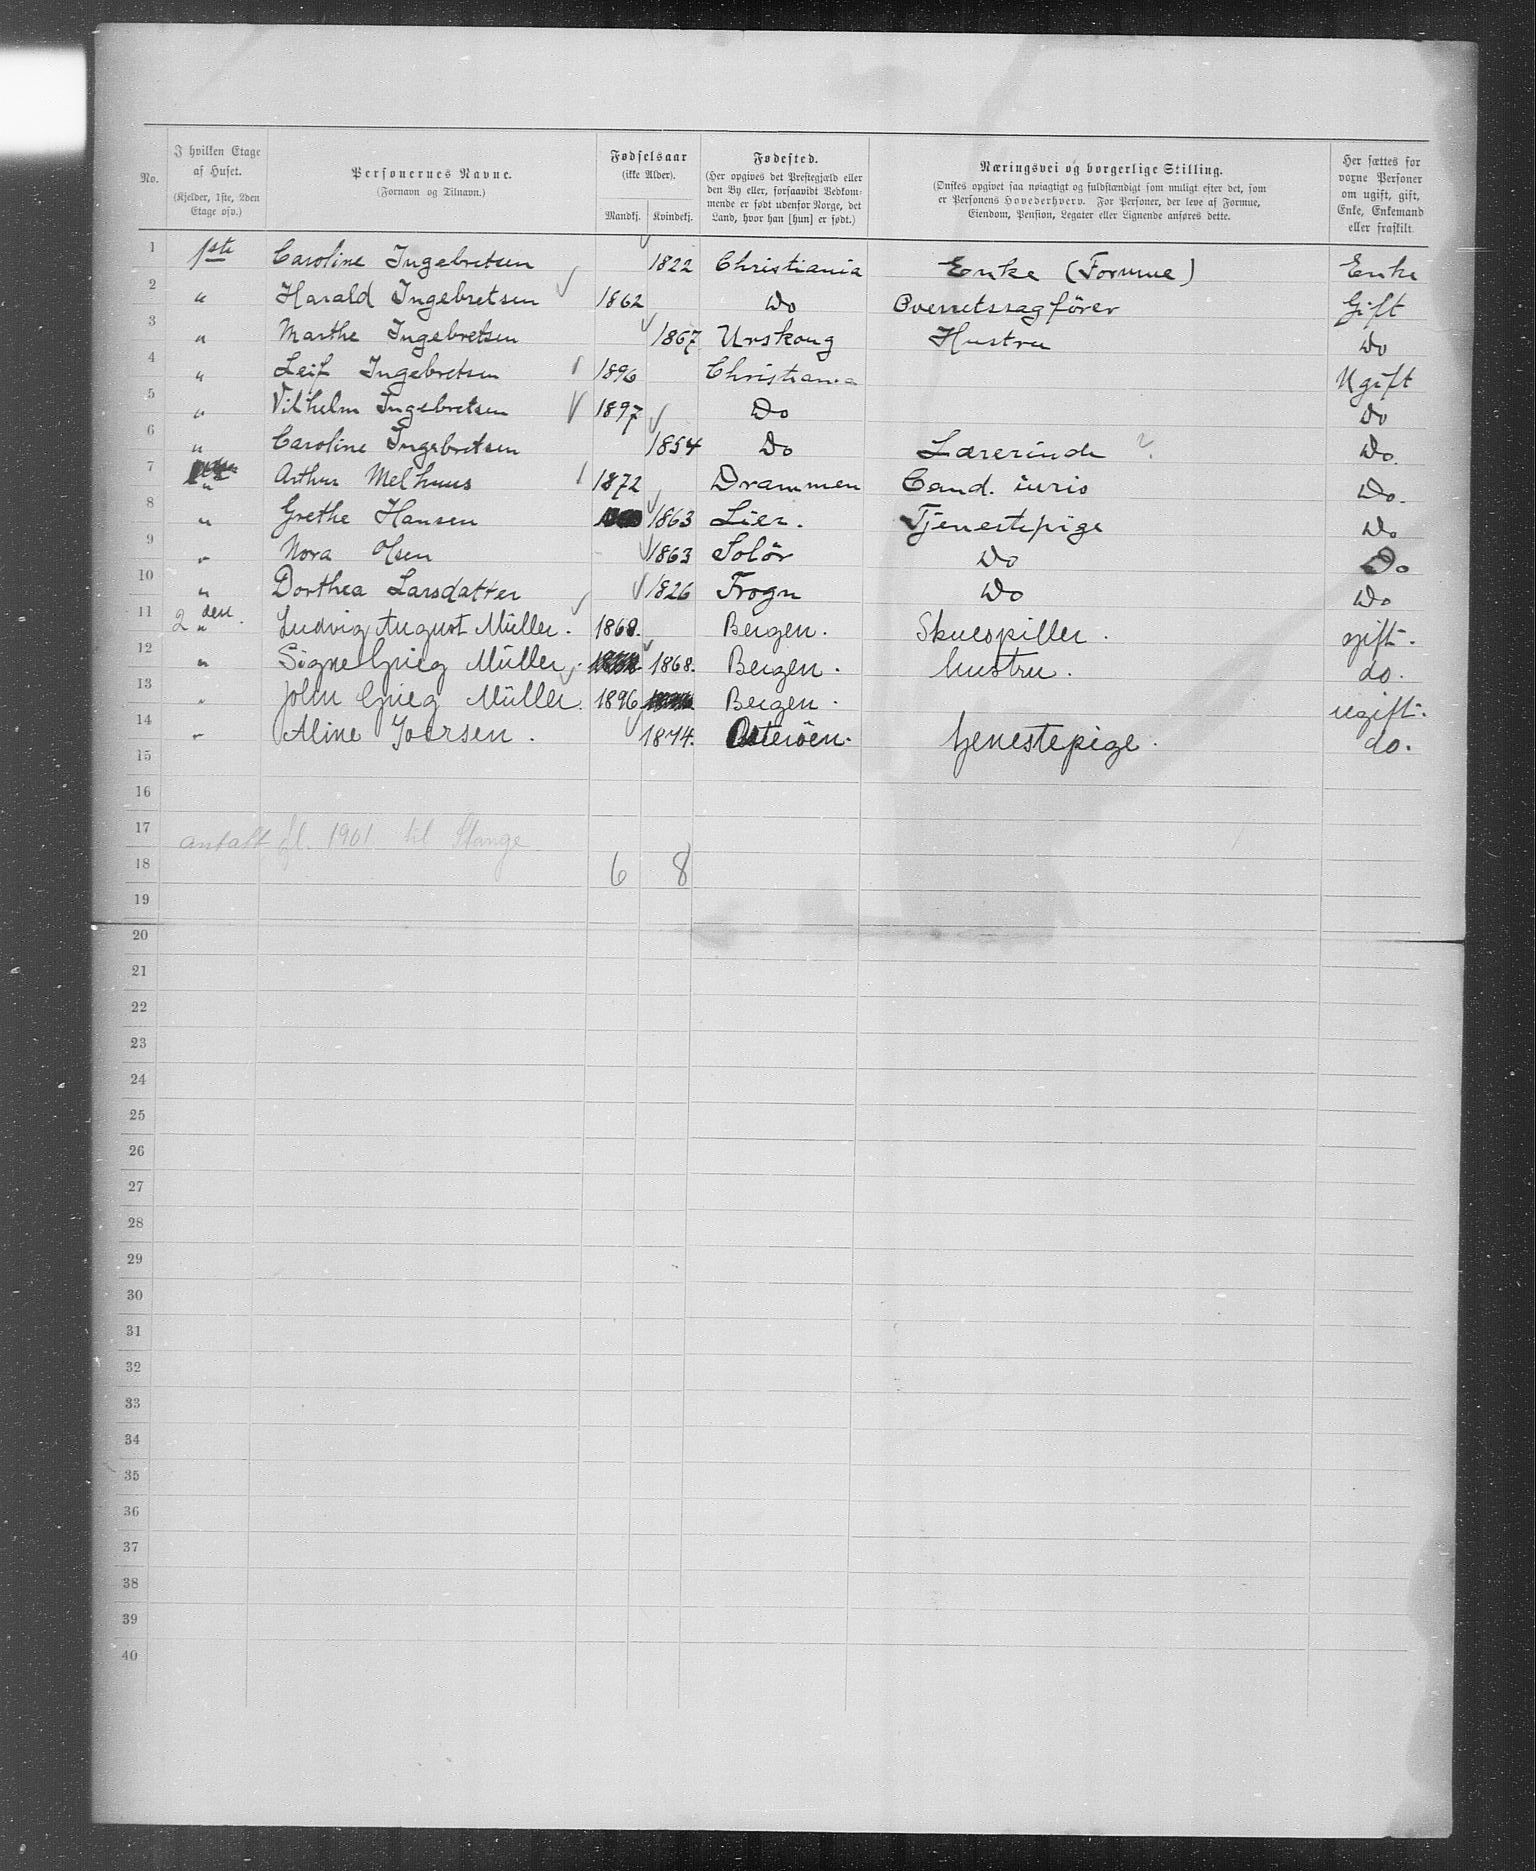 No. | I hvilken Etage af Huset. (Kjelder, 1ste, 2den Etage osv.) | Personernes Navne. (Fornavn og Tilnavn.) | Fødselsaar (ikke Alder). Mandkj. Kvindekj. | Fødested. (Her opgives det Prestegjæld eller den By eller, forsaavidt Vedkommende er født udenfor Norge, det Land, hvor han [hun] er født.) | Næringsvei og borgerlige Stilling. (Ønskes opgivet saa nøiagtigt og fuldstændigt som muligt efter det, som er Personens Hovederhverv. For Personer, der leve af Formue, Eiendom, Pension, Legater eller Lignende anføres dette. | Her sættes for voxne Personer om ugift, gift, Enke, Enkemand eller fraskilt
1 1ste Caroline Ingebretsen 1822 Christiania Enke (Formue) Enke
2 " Harald Ingebretsen 1862 Do Overretssagförer Gift
3 " Marthe Ingebretsen 1867 Urskoug Hustru Do
4 " Leif Ingebretsen 1896 Christiania Ugift
5 " Vilhelm Ingebretsen 1897 Do Do
6 " Caroline Ingebretsen 1854 Do Lærerinde ? Do.
7 " Arthur Melhuus 1872 Drammen Cand. iuris Do.
8 " Grethe Hansen 1863 Lier. Tjenestepige Do
9 " Nora Olsen 1863 Solör Do Do
10 " Dorthea Larsdatter 1826 Frogn Do Do
11 2den " Ludvig August Müller. 1868. Bergen. Skuespiller. gift.
12 " Signe Grieg Müller. 1868. Bergen. hustru. do.
13 " John Grieg Müller. 1896 Bergen. ugift.
14 " Aline Joersen. 1874. Osteröen. tjenestepige. do.
15
16
17 antalt fl. 1901 til Stange
18 6 8
19
20
21
22
23
24
25
26
27
28
29
30
31
32
33
34
35
36
37
38
39
40